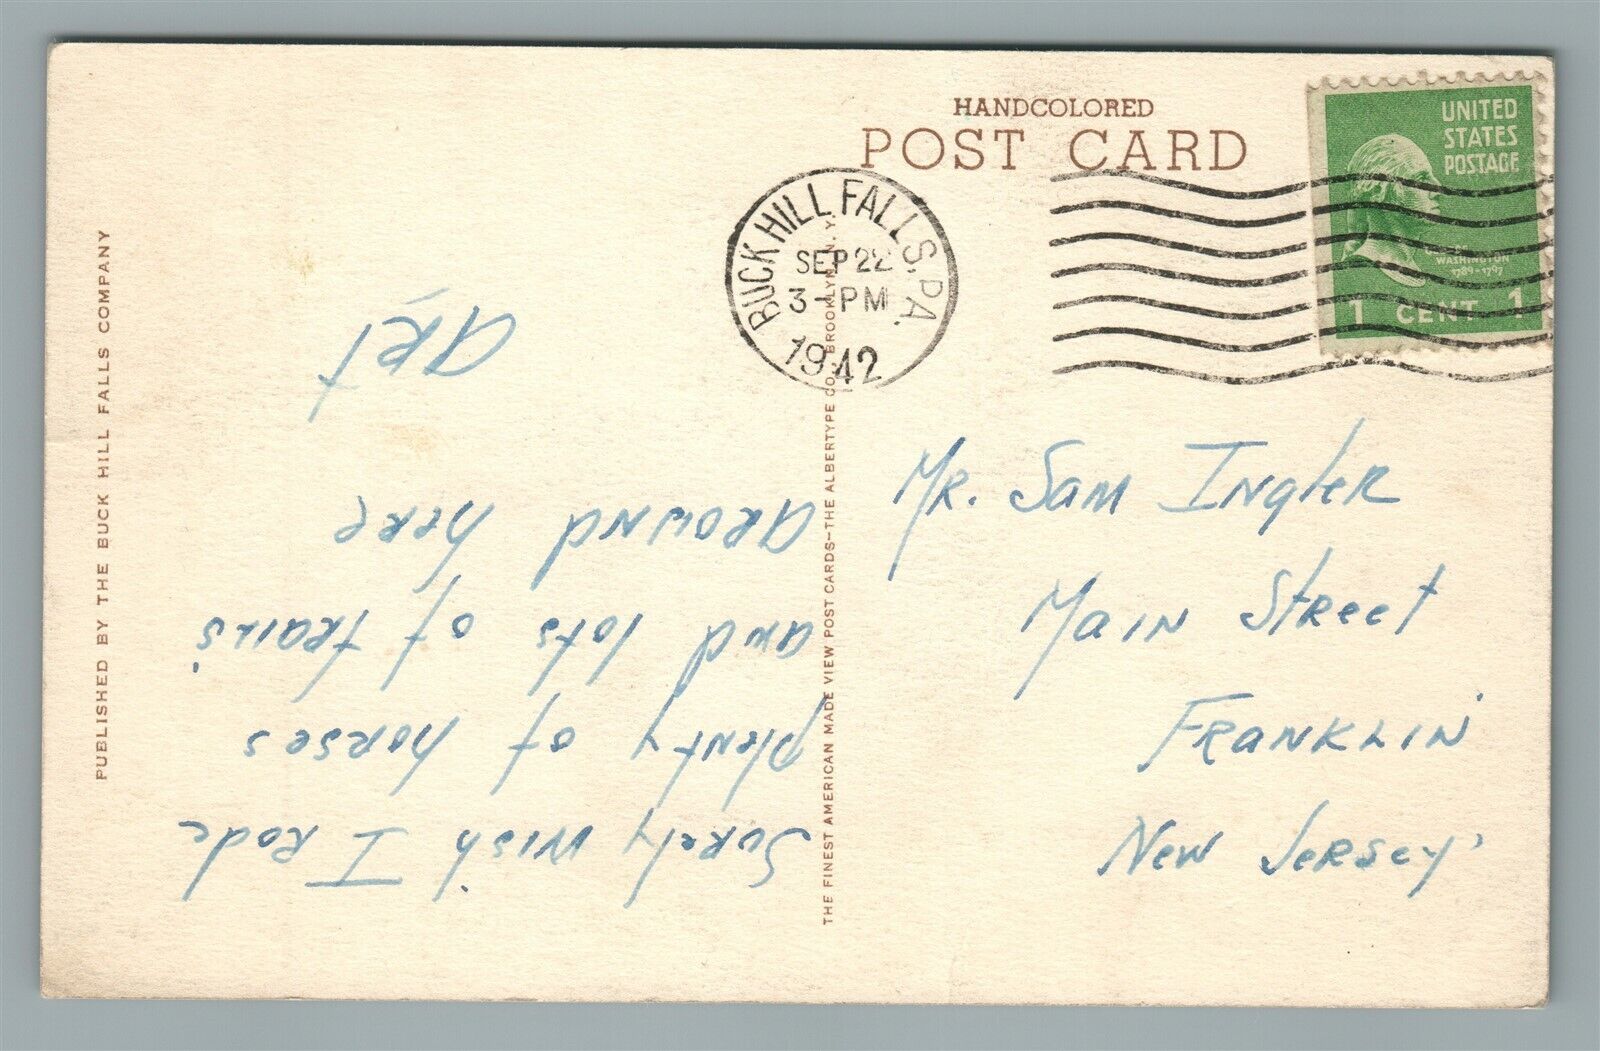 HANDCOLORED
POST CARD
UNITED
STATES
POSTAGE
WASHINGTON
1789-1797
1 CENT 1
BUCK HILL FALLS, PA.
SEP 22
3-PM
1942
PUBLISHED BY THE BUCK HILL FALLS COMPANY
THE FINEST AMERICAN MADE VIEW POST CARDS—THE ALBERTYPE CO., BROOKLYN, N. Y.
Surely wish I rode
plenty of horses
and lots of trails
around here
Art
Mr. Sam Ingler
Main Street
Franklin
New Jersey